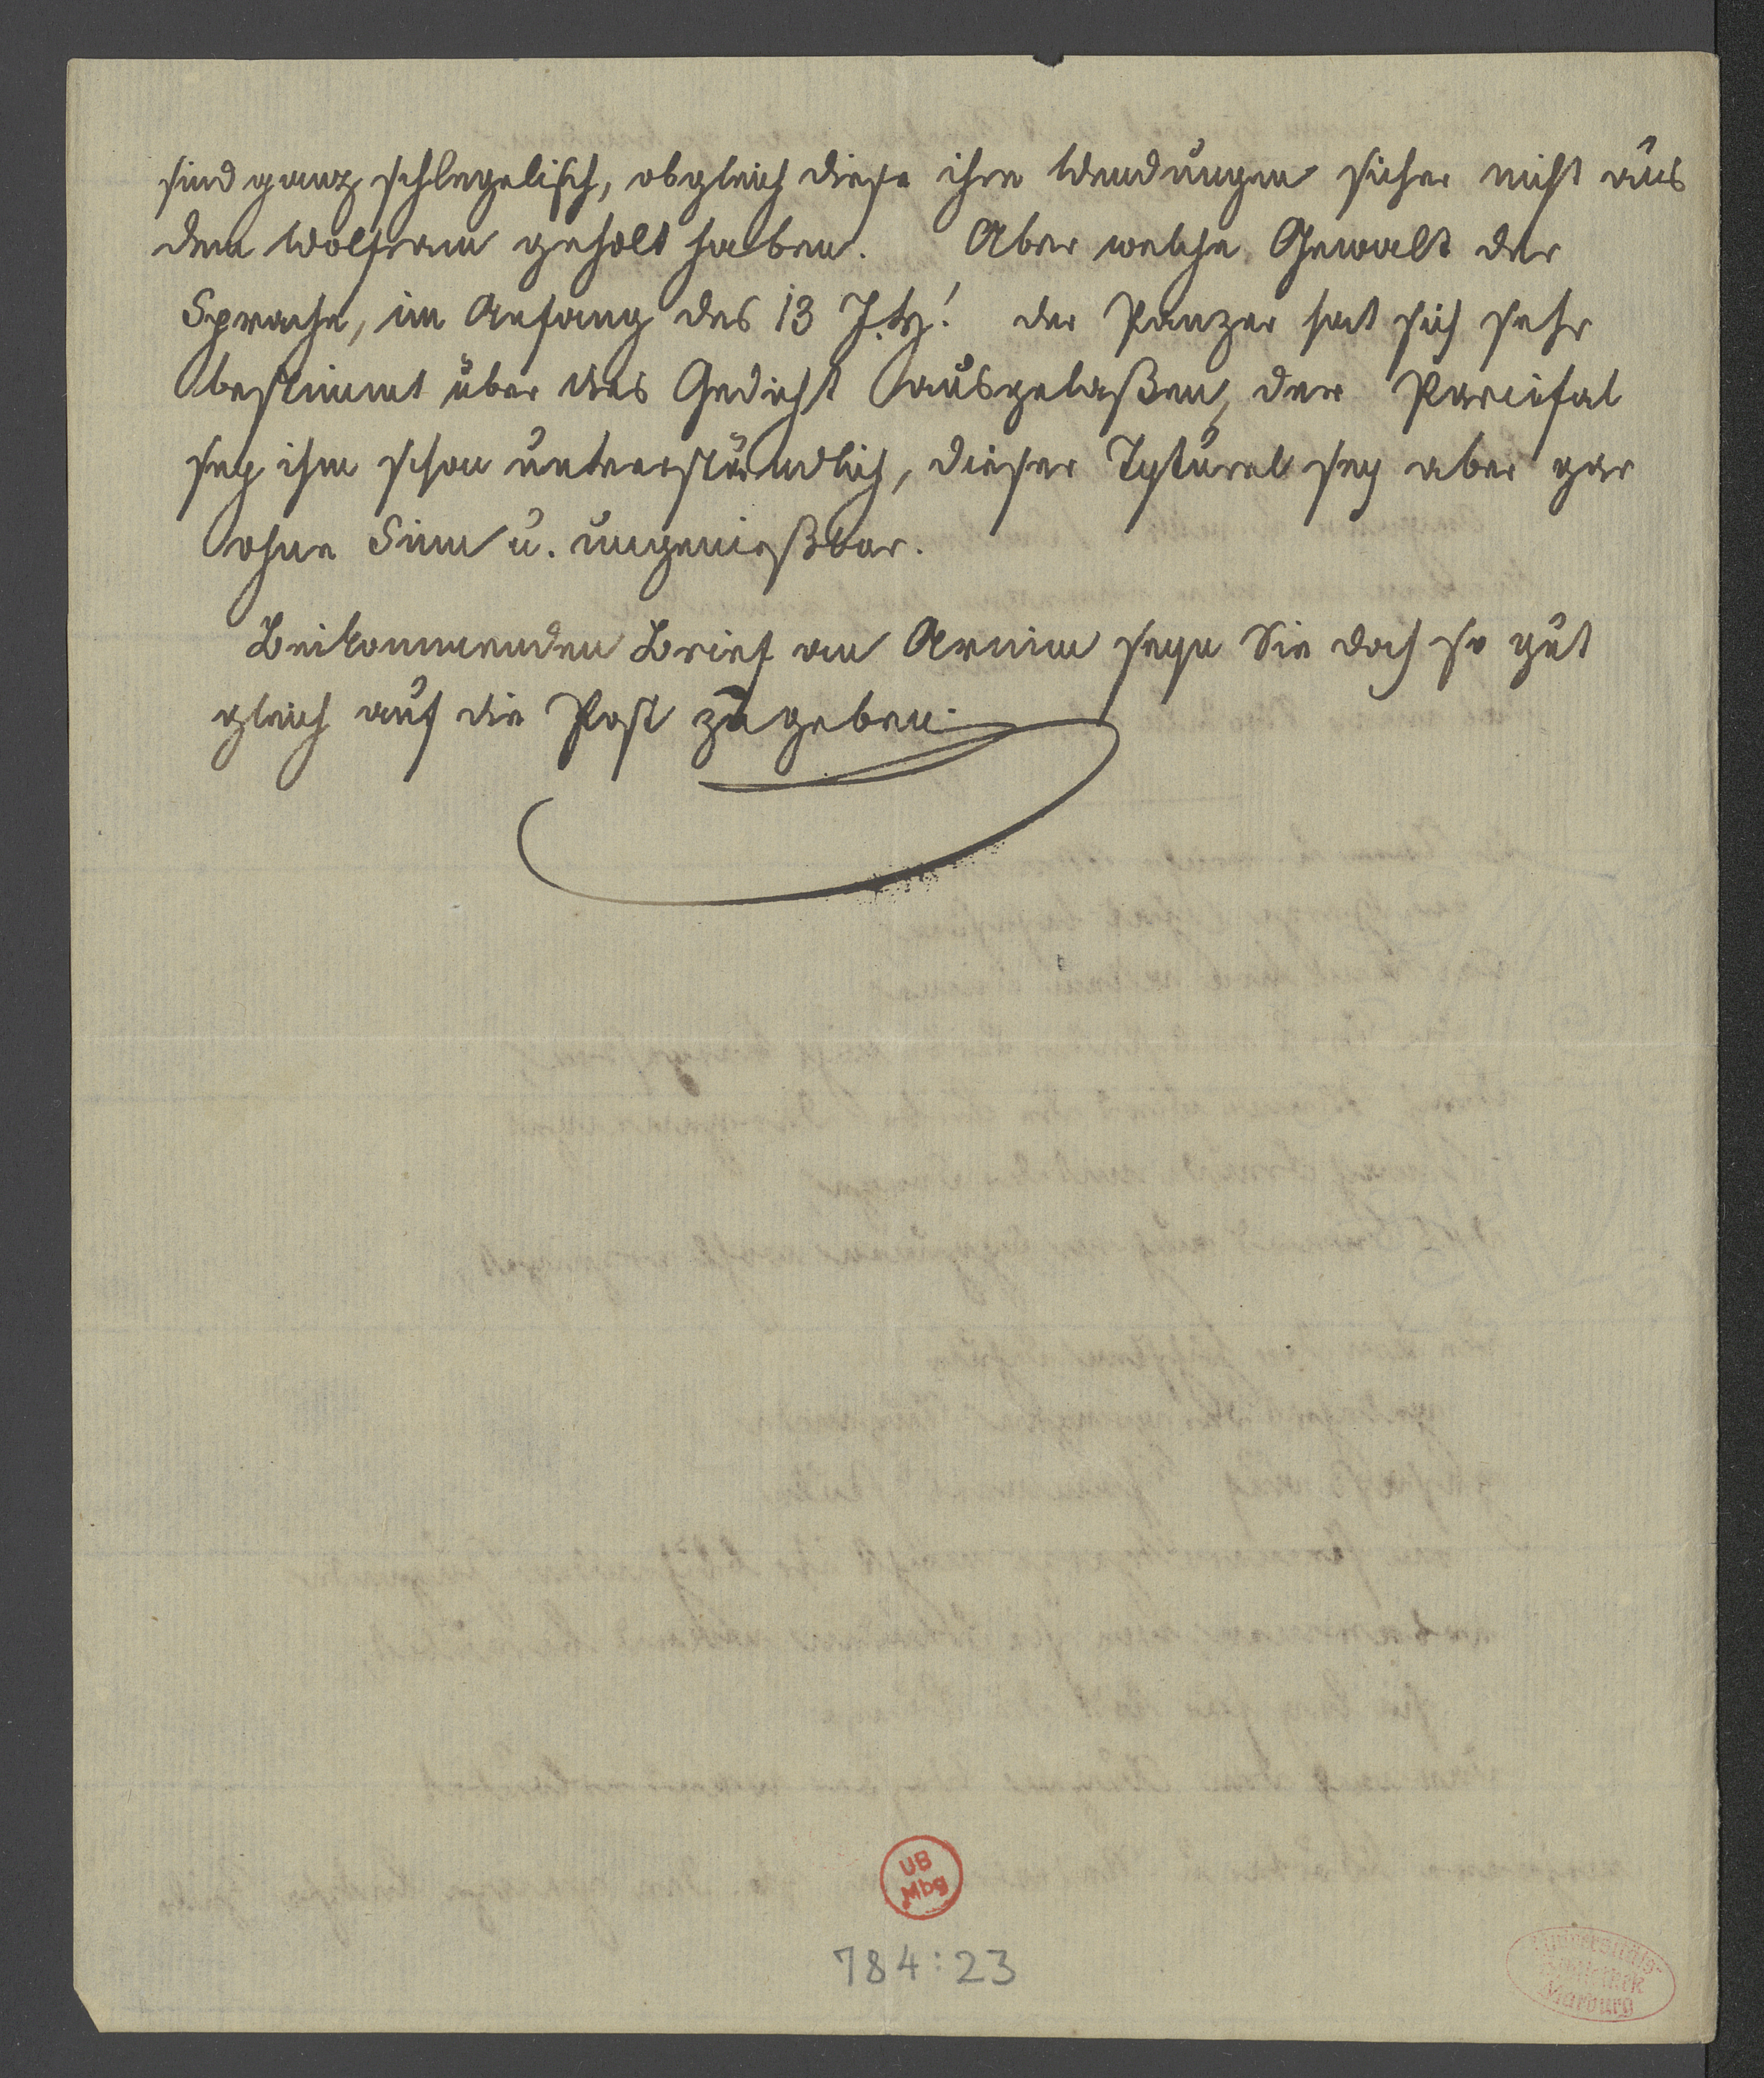 sind ganz schlegelisch, obgleich diese ihre Wendungen sicher nicht aus
dem Wolfram geholt haben. Aber welche Gewalt der
Sprache, im Anfang des 13 J.h! der Panzer hat sich sehr
bestimmt über das Gedicht ausgelaßen, der Parcifal
sey ihm schon unverständlich, dieser Tyturel sey aber gar
ohne Sinn u. ungenießbar.
Beikommenden Brief an Arnim seyn Sie doch so gut
gleich auf die Post zu geben.
UB
Mbg
784:23
Universitäts-
Bibliothek
Marburg